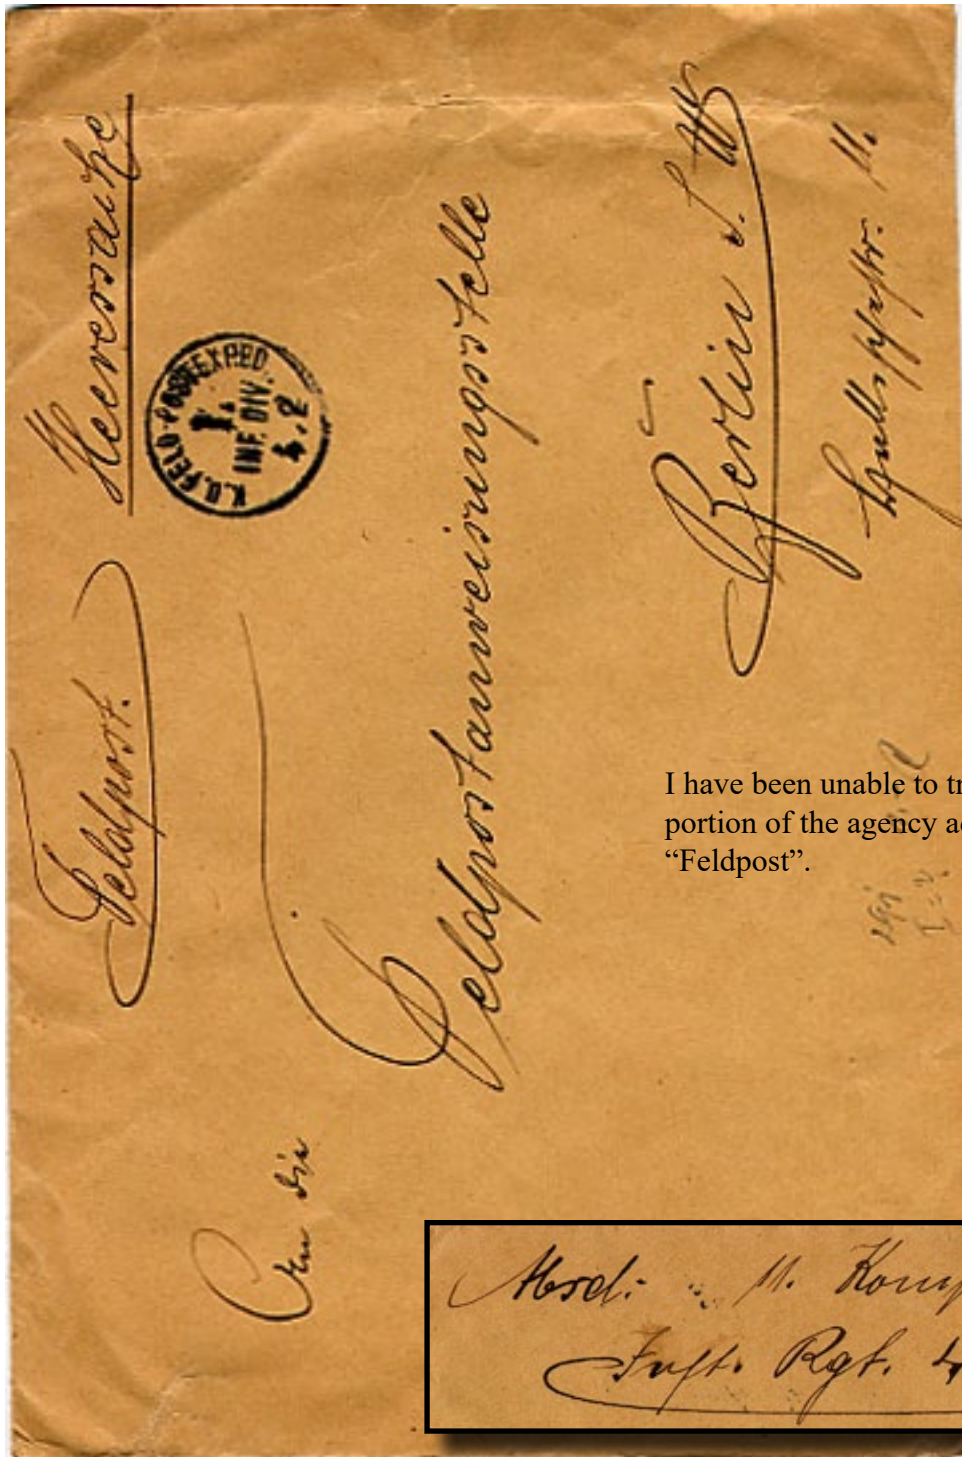 Feldpost. Heeressache
K.D. FELD-POSTEXPED.
1.
INF. DIV.
4.2
An die
Feldpostanweisungsstelle
Berlin S.W.
11.
I have been unable to
portion of the agency
“Feldpost”.
Absd: 11.
Inft. Rgt. 4